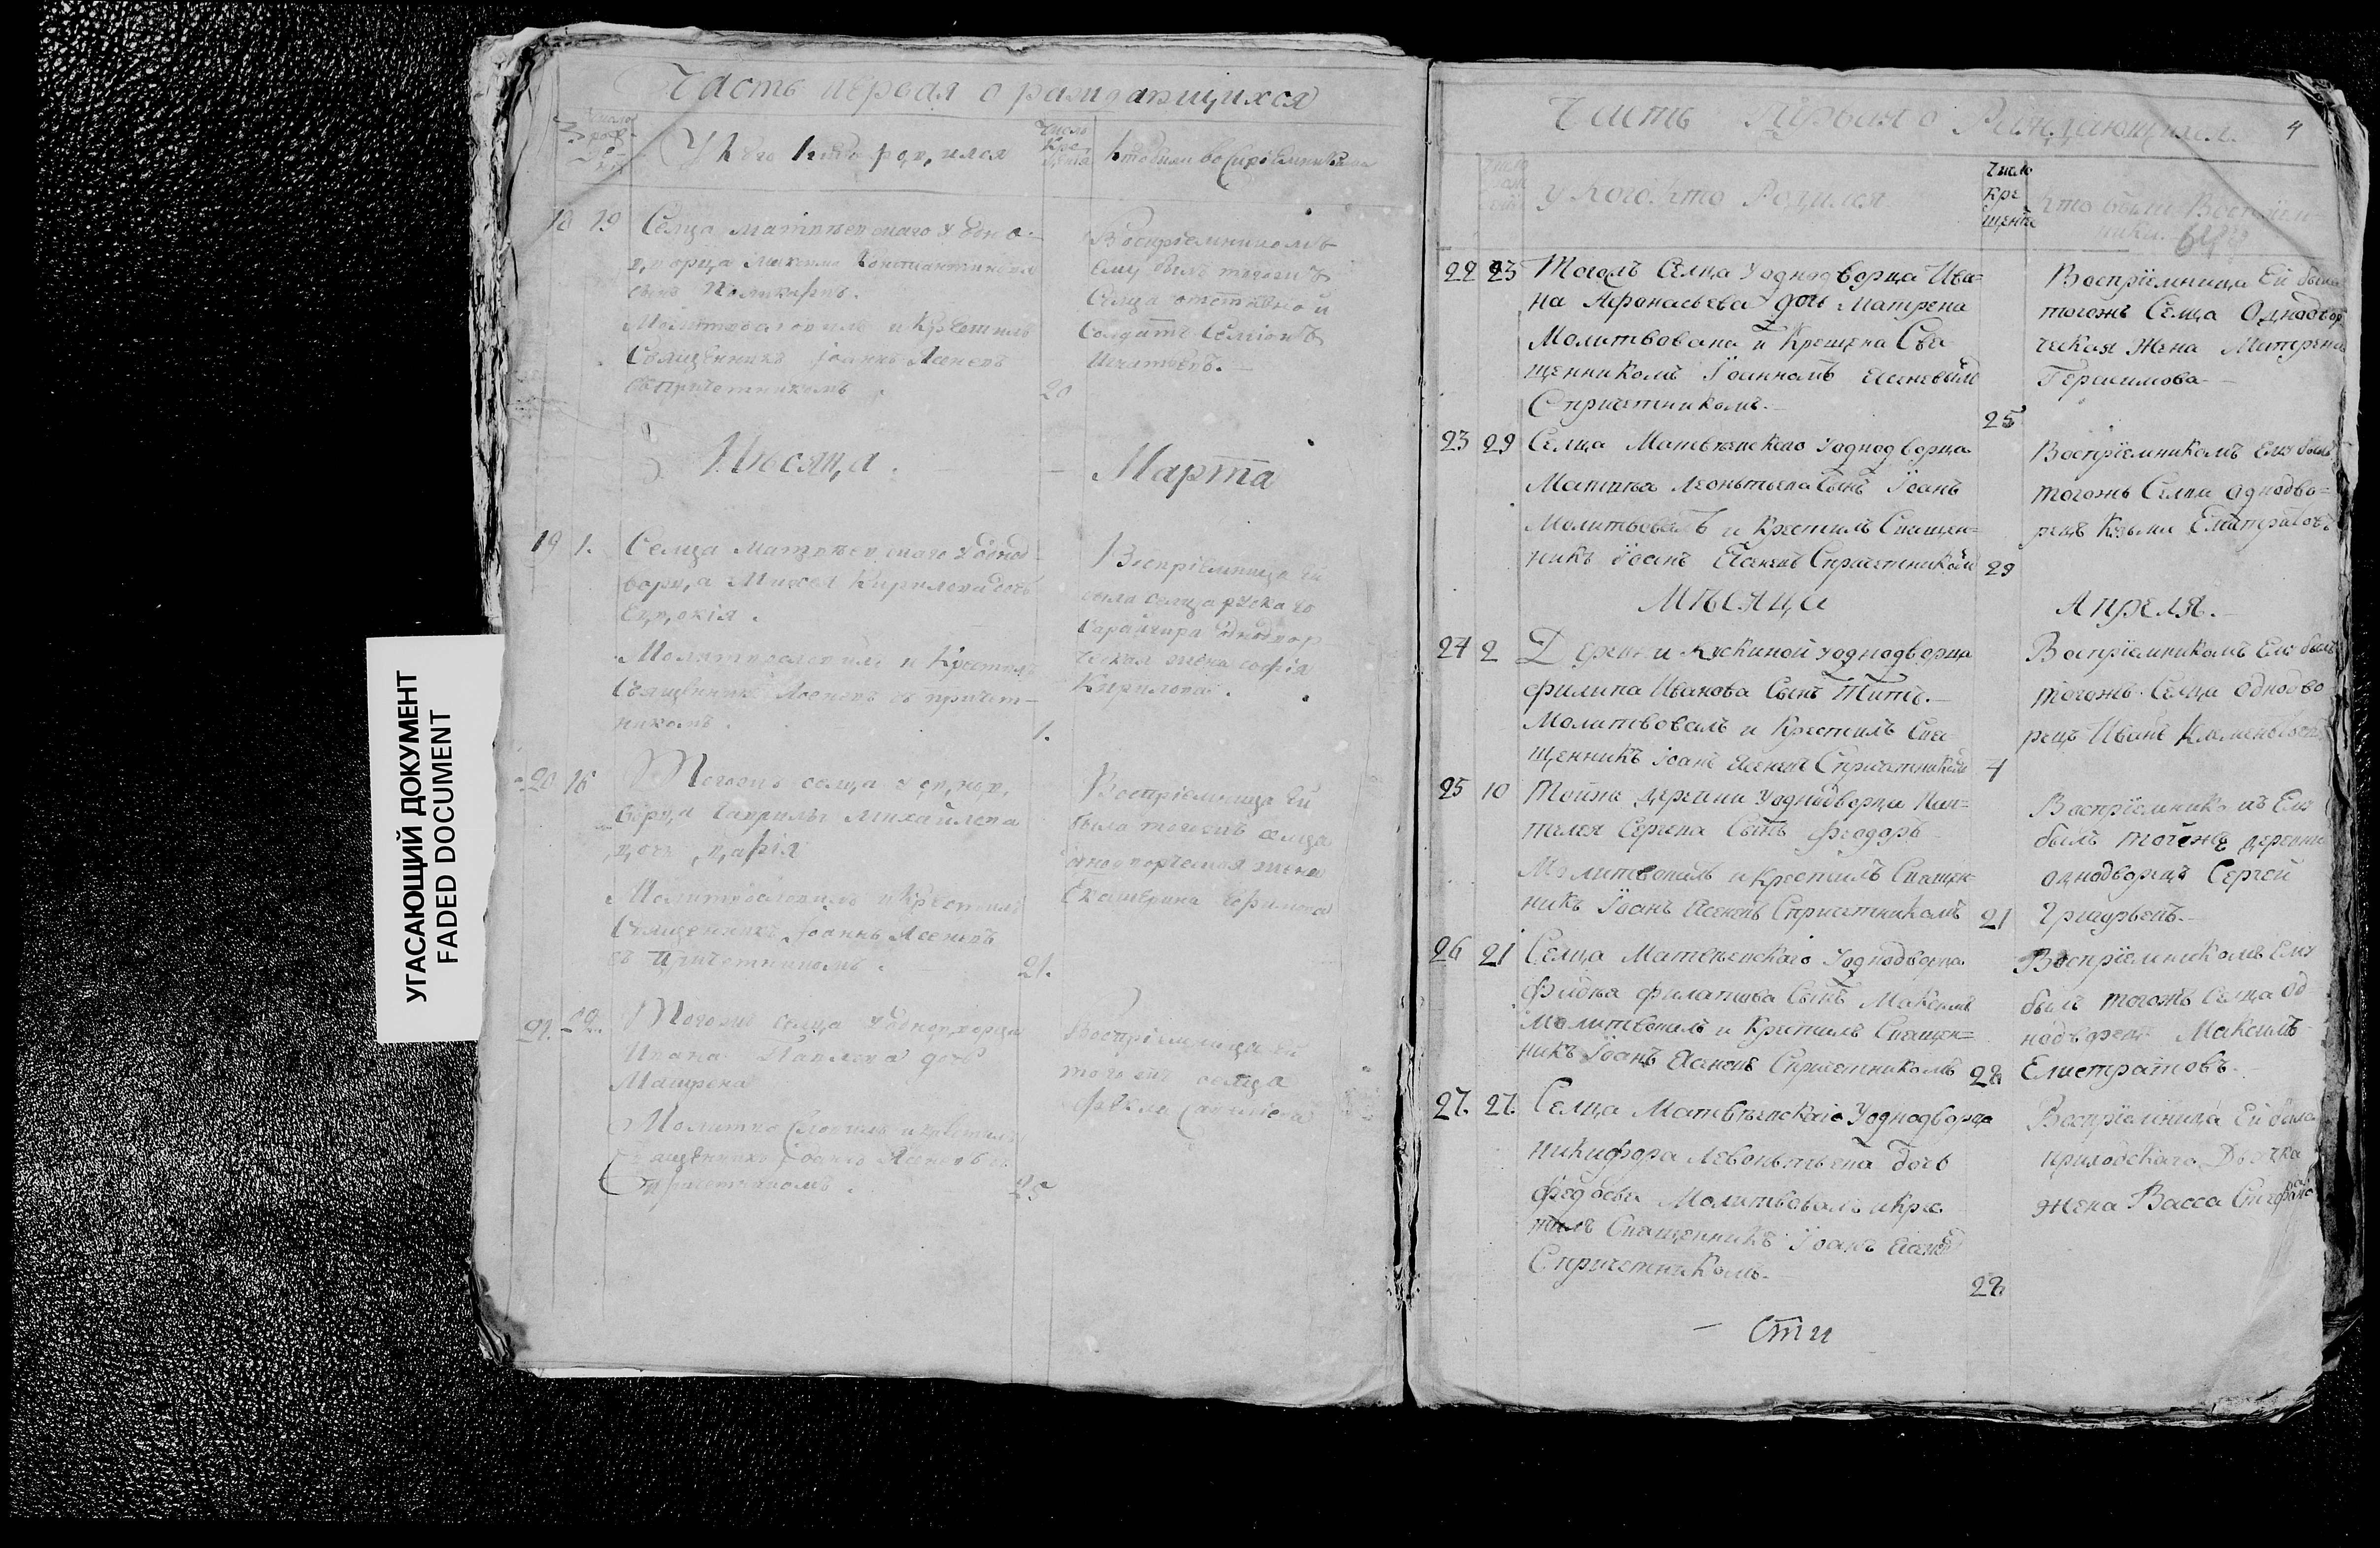 УГАСАЮЩИЙ ДОКУМЕНТ
FADED DOCUMENT
Часть первая о раждающихся
Число
рож
У кого кто родился
Число
Кре
щенія
кто были воспріемниками
18 19 Селца Матвѣевскаго у одно
дворца Максима Константинова
сынъ Поликарпъ.
Молитвословилъ и Крестилъ
Священникъ Іоаннъ Ясеневъ
съ причетникомъ.
20
Воспріемникомъ
ему былъ тогожъ
Селца отставной
Солдатъ Семіонъ
Игнатьевъ.
Мѣсяца. Марта
19 1. Селца Матвѣевскаго у однод
ворца Михея Кирилова дочь
Евдокія.
Молитвословилъ и Крестилъ
Священникъ Ясеневъ съ причет-
никомъ.
1.
Воспріемница Ей
была селца
однодвор
ческая жена Софія
Кирилова.
20 16 Тогожъ селца у однод
ворца Гаврилы Михайлова
дочь Дарія
Молитвословилъ и Крестилъ
Священникъ Іоаннъ Ясеневъ
съ причетникомъ.
21.
Воспріемница Ей
была тогожъ селца
однодворческая жена
Екатерина Ефимова
21. 22. Тогожъ селца у однодворца
Ивана Павлова дочь
Матрена
Молитвословилъ и крестилъ
Священникъ Іоаннъ Ясеневъ съ
причетникомъ.
25
Воспріемница ей
тогожъ селца
Фекла Савельева
Часть Первая о Раждающихся. 4
Число
у Кого Кто Родился
Число
Кре
щенія
Кто были Воспріем-
ники.
22 23 Тогожъ Селца у однодворца Ива-
на Афонасьева дочь Матрена
Молитвована и Крещена Свя
щенникомъ Іоанномъ Ясеневымъ
Спричетникомъ.
25
Воспріемница Ей была
тогожъ Селца Однодвор
ческая Жена Матрена
Герасимова
23 29 Селца Матвѣевскаго у однодворца
Матвѣя Леонтьева Сынъ Іоанъ
Молитвовалъ и Крестилъ Священ-
никъ Іоанъ Ясеневъ Спричетникомъ
29
Воспріемникомъ Ему былъ
тогожъ Селца однодво-
рецъ Козьма Елистратовъ
Мѣсяца Апреля.
24 2 Деревни Кускиной у однодворца
Филипа Иванова Сынъ Титъ.
Молитвовалъ и Крестилъ Свя
щенникъ Іоанъ Ясеневъ Спричетникомъ
4
Воспріемникомъ Ему былъ
тогожъ Селца однодво
рецъ Иванъ
25 10 Тойжъ деревни у однодворца Пан-
телея Сергева Сынъ Феодоръ
Молитвовалъ и Крестилъ Священ-
никъ Іоанъ Ясеневъ Спричетникомъ
21
Воспріемникомъ Ему
былъ тойжъ деревни
однодворецъ Сергей
Григорьевъ.
26 21 Селца Матвѣевскаго у однодворца
Филатьева Сынъ Максимъ
Молитвовалъ и Крестилъ Священ-
никъ Іоанъ Ясеневъ Спричетникомъ
22
Воспріемникомъ Ему
былъ тогожъ Селца Од
нодворецъ Максимъ
Елистратовъ.
27. 27. Селца Матвѣевскаго у однодворца
Никифора Левонтьева дочь
Федосья Молитвовалъ и Крес
тилъ Священникъ Іоанъ Ясеневъ
Спричетникомъ.
28
Воспріемница Ей была
приходскаго Дьячка
Жена Васса Стефанова
Сти